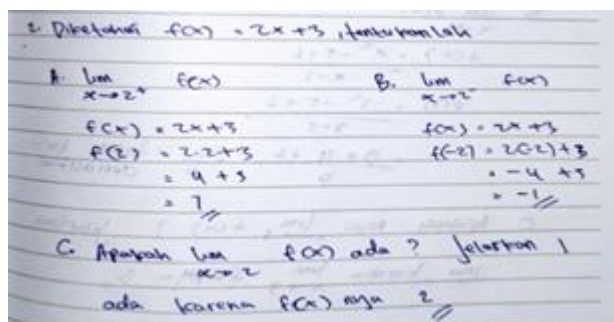 2. Diketahui f(x) = 2x + 3, tentukanlah
A. lim x→2⁺ f(x)
B. lim x→2⁻ f(x)
f(x) = 2x+3
f(2) = 2.2+3
= 4 + 3
= 7
f(x) = 2x+3
f(-2) = 2(-2)+3
= -4 +3
= -1
C. Apakah lim x→2 f(x) ada ? Jelaskan !
ada karena f(x) nya 2